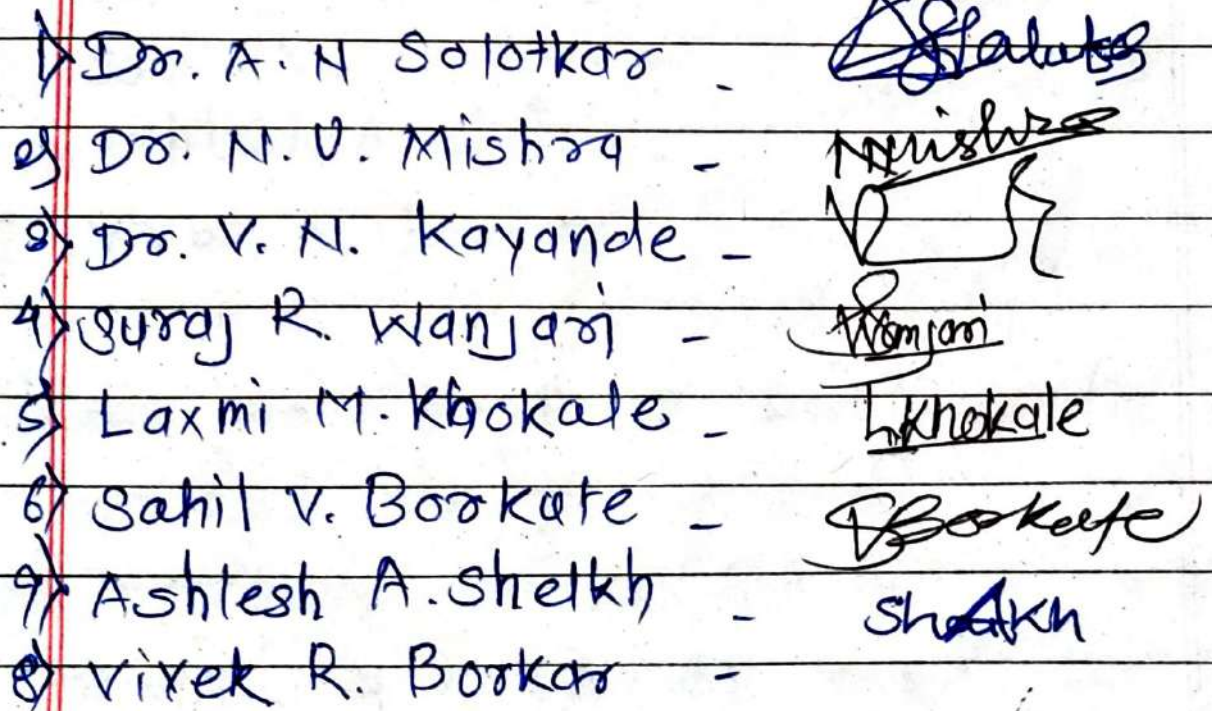 1) Dr. A. N Solotkar -
2) Dr. N. V. Mishra - Nmishra
3) Dr. V. N. Kayande -
4) Suraj R. Wanjari - Wanjari
5) Laxmi M. Khokale - Lkhokale
6) Sahil V. Borkate - Borkate
7) Ashlesh A. Sheikh - Sheikh
8) Vivek R. Borkar -